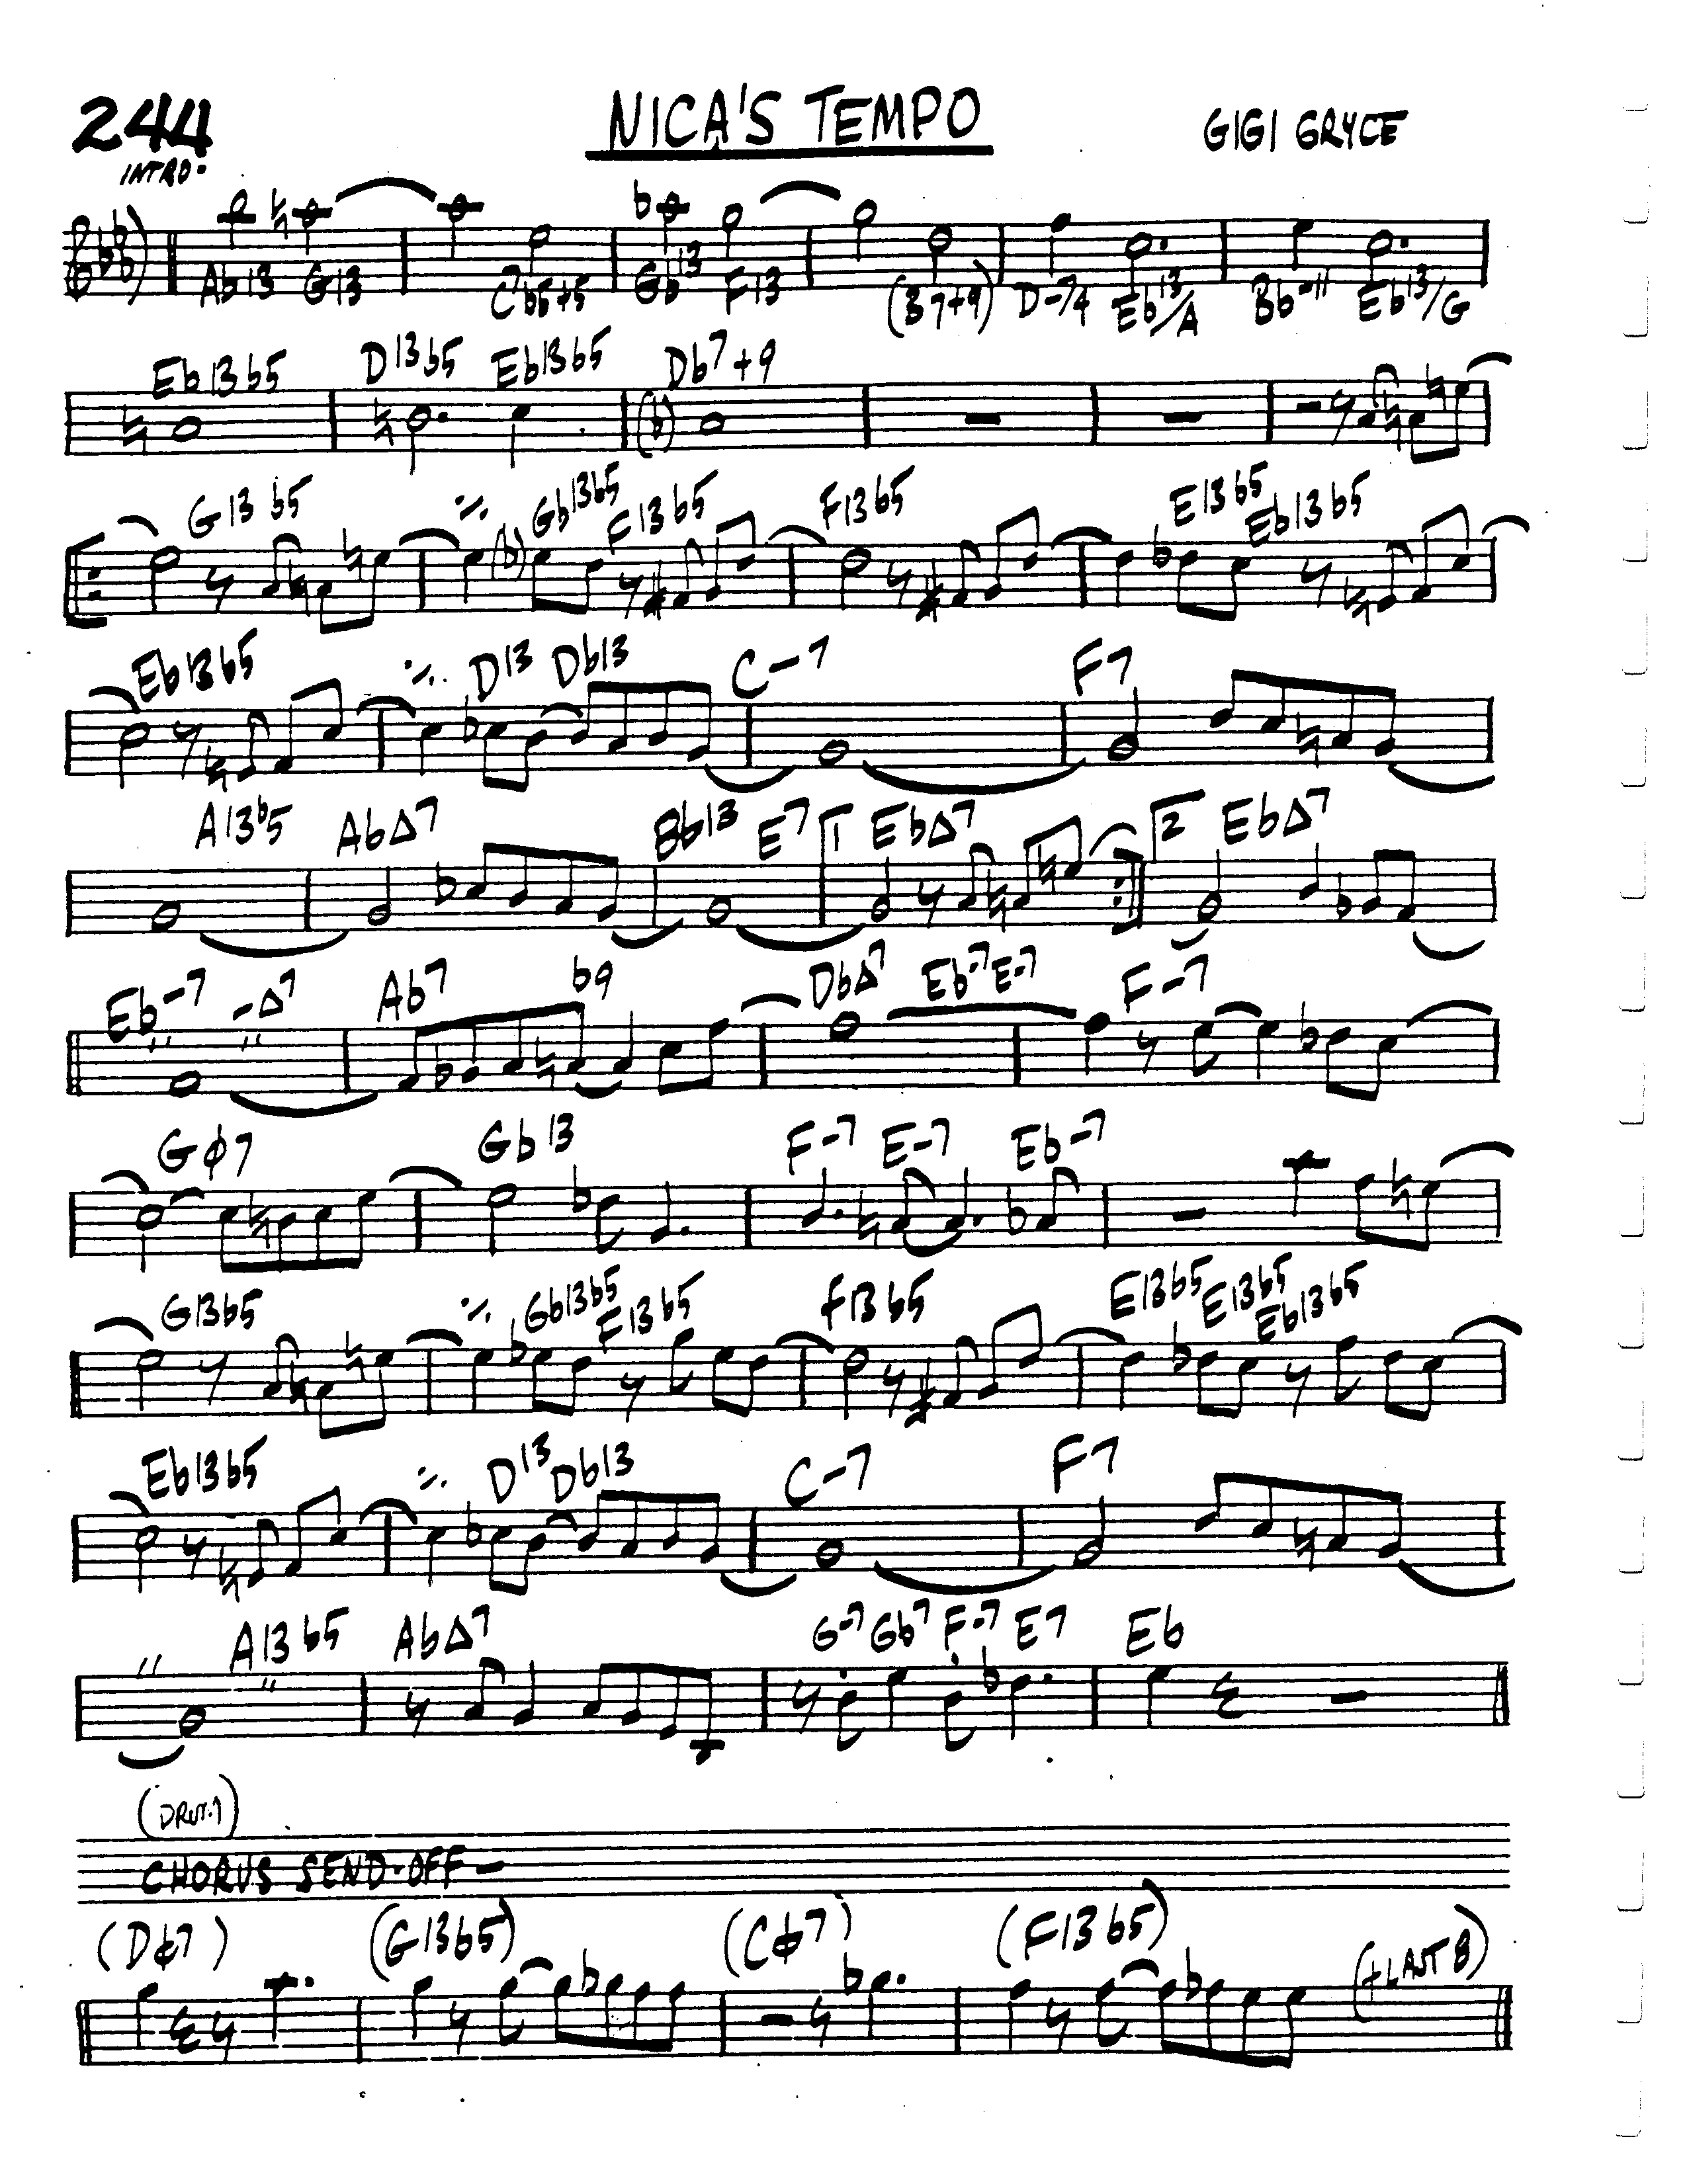 NICA'S TEMPO
244 GIGI GRYCE
INTRO.
Ab13 G13 C7b5+5 Gb13 F13 (B7+9) D-7/4 Eb13/A Bb-11 Eb13/G
Eb13b5 D13b5 Eb13b5 Db7+9
G13b5 ٪ Gb13b5 F13b5 F13b5 E13b5 Eb13b5
Eb13b5 ٪ D13 Db13 C-7 F7
A13b5 AbΔ7 Bb13 E7 1 EbΔ7 2 EbΔ7
Eb-7 -Δ7 Ab7 b9 DbΔ7 Eb-7 E-7 F-7
Gϕ7 Gb13 F-7 E-7 Eb-7
G13b5 ٪ Gb13b5 F13b5 F13b5 E13b5 E13b5 Eb13b5
Eb13b5 ٪ D13 Db13 C-7 F7
A13b5 AbΔ7 G-7 Gb7 F-7 E7 Eb
CHORUS SEND-OFF
(Dϕ7) (G13b5) (Cϕ7) (F13b5) (+LAST 8)